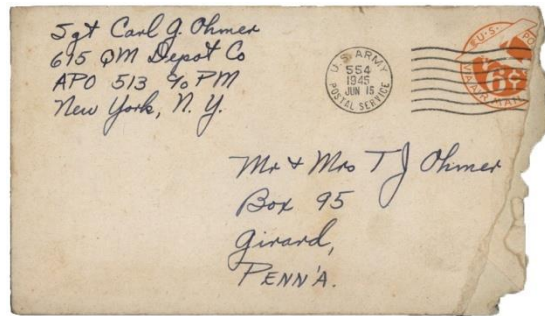 Sgt Carl G. Ohmer
615 QM Depot Co
APO 513 % PM
New York, N. Y.
U.S. ARMY
554
1945
JUN 15
POSTAL SERVICE
U.S. PO
6¢
VIA AIR MAIL
Mr & Mrs T J Ohmer
Box 95
Girard,
PENN'A.